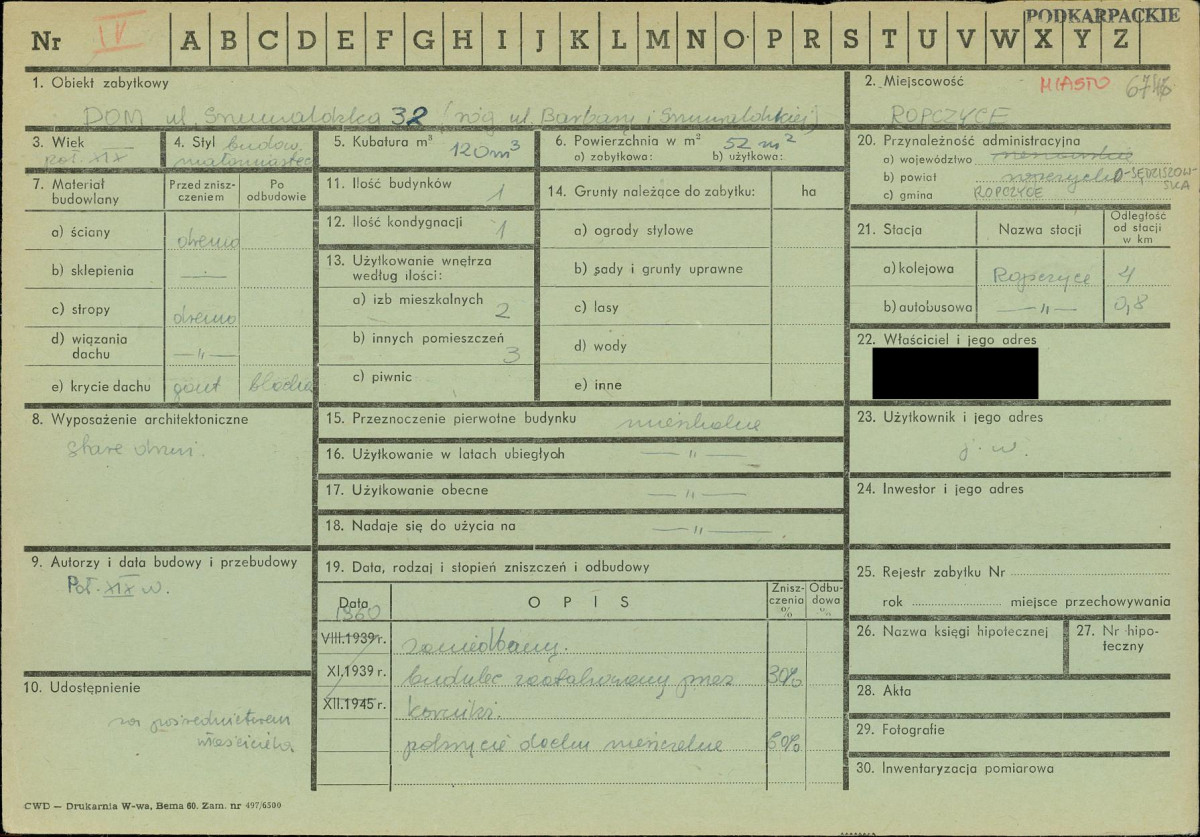 PODKARPACKIE
Nr IV A B C D E F G H I J K L M N O P R S T U V W X Y Z
1. Obiekt zabytkowy
DOM ul. Grunwaldzka 32 (róg ul. Barbary i Grunwaldzkiej)
2. Miejscowość MIASTO
ROPCZYCE
3. Wiek
poł. XIX
4. Styl budow.
małomiastecz
5. Kubatura m³ 120 m³
6. Powierzchnia w m² 52 m²
a) zabytkowa: b) użytkowa:
20. Przynależność administracyjna
a) województwo rzeszowskie
b) powiat ropczycko-SĘDZISZOWSKA
c) gmina ROPCZYCE
7. Materiał budowlany
Przed zniszczeniem
Po odbudowie
a) ściany drewno
b) sklepienia —
c) stropy drewno
d) wiązania dachu —„—
e) krycie dachu gont blacha
11. Ilość budynków 1
12. Ilość kondygnacji 1
13. Użytkowanie wnętrza według ilości:
a) izb mieszkalnych 2
b) innych pomieszczeń 3
c) piwnic
14. Grunty należące do zabytku: ha
a) ogrody stylowe
b) sady i grunty uprawne
c) lasy
d) wody
e) inne
21. Stacja
Nazwa stacji
Odległość od stacji w km
a) kolejowa Ropczyce 4
b) autobusowa —„— 0,8
22. Właściciel i jego adres
8. Wyposażenie architektoniczne
stare drzwi.
15. Przeznoczenie pierwotne budynku mieszkalne
16. Użytkowanie w latach ubiegłych —„—
17. Użytkowanie obecne —„—
18. Nadaje się do użycia na —„—
23. Użytkownik i jego adres
j. w.
24. Inwestor i jego adres
9. Autorzy i data budowy i przebudowy
Poł. XIX w.
19. Data, rodzaj i stopień zniszczeń i odbudowy
Data
1960
OPIS
Zniszczenia %
Odbudowa %
VIII.1939 r. zaniedbany.
XI.1939 r. budulec zaatakowany przez 30%
XII.1945 r. korniki.
pokrycie dachu nieszczelne 60%
25. Rejestr zabytku Nr
rok miejsce przechowywania
26. Nazwa księgi hipotecznej
27. Nr hipoteczny
10. Udostępnienie
za pośrednictwem
właściciela
28. Akta
29. Fotografie
30. Inwentaryzacja pomiarowa
CWD — Drukarnia W-wa, Bema 60. Zam. nr 497/6500